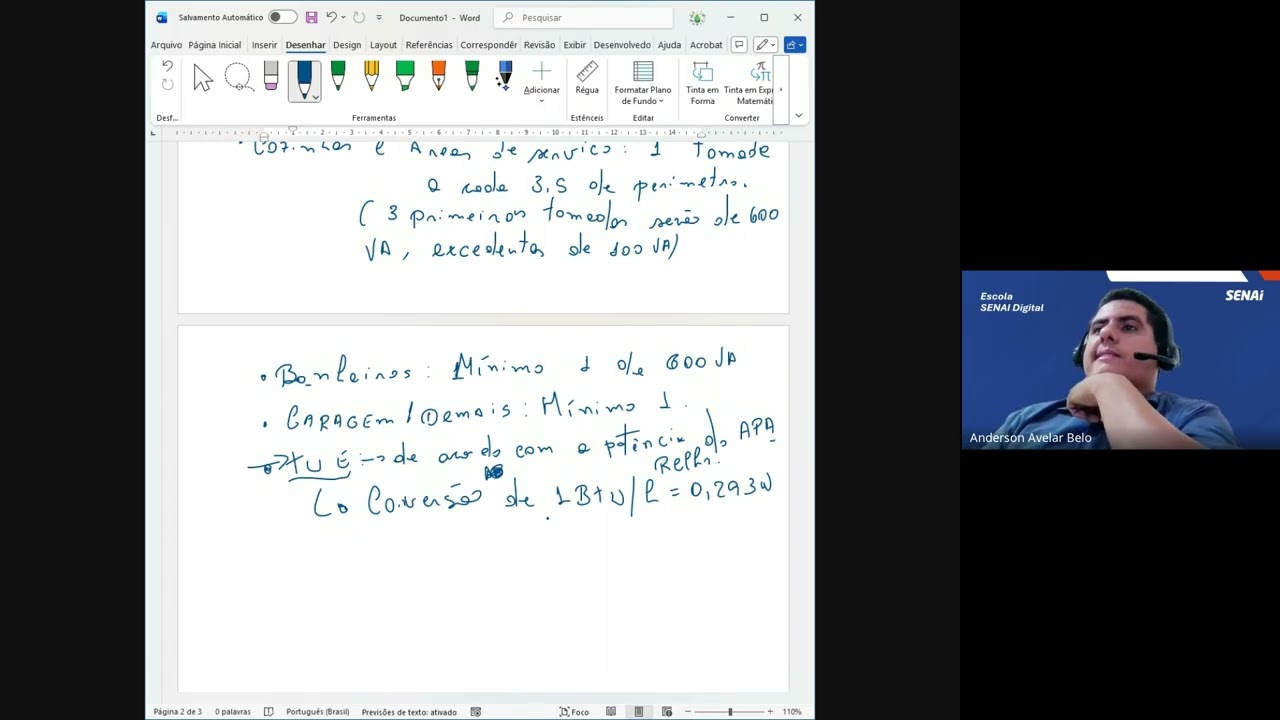 Salvamento Automático
Documento1 - Word
Pesquisar
Arquivo Página Inicial Inserir Desenhar Design Layout Referências Correspondêr Revisão Exibir Desenvolvedo Ajuda Acrobat
Adicionar
Régua
Formatar Plano de Fundo
Tinta em Forma
Tinta em Exp Matemáti
Desf...
Ferramentas
Estênceis
Editar
Converter
Cozinhas e Áreas de serviço: 1 tomada
a cada 3,5 de perímetro.
( 3 primeiras tomadas serão de 600
VA, excedentes de 100 VA)
• Banheiros: Mínimo 1 de 600 VA
• GARAGEM / Demais: Mínimo 1.
TUE → de acordo com a potência do APA
RELHO.
Conversão de 1 BTU/h = 0,293 W
Escola
SENAI Digital
SENAI
Anderson Avelar Belo
Página 2 de 3 0 palavras Português (Brasil) Previsões de texto: ativado Foco 110%